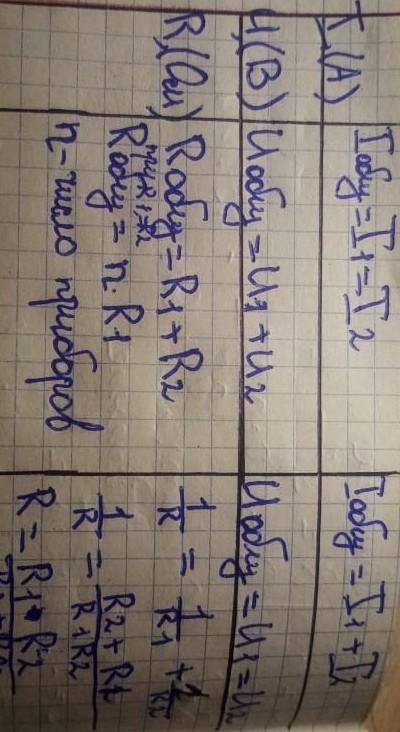 I, (A)
Iобщ = I1 = I2
Iобщ = I1 + I2
U, (В)
Uобщ = U1 + U2
Uобщ = U1 = U2
R, (Ом)
Rобщ = R1 + R2
при R1=R2
Rобщ = n · R1
n - число приборов
1/R = 1/R1 + 1/R2
1/R = R2 + R1 / R1R2
R = R1 · R2 / R1 + R2